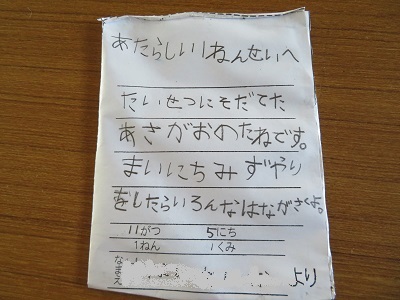 あたらしい1ねんせいへ
たいせつにそだてた
あさがおのたねです。
まいにちみずやり
をしたらいろんなはながさくよ。
11がつ 5にち
1ねん 1くみ
なまえ より